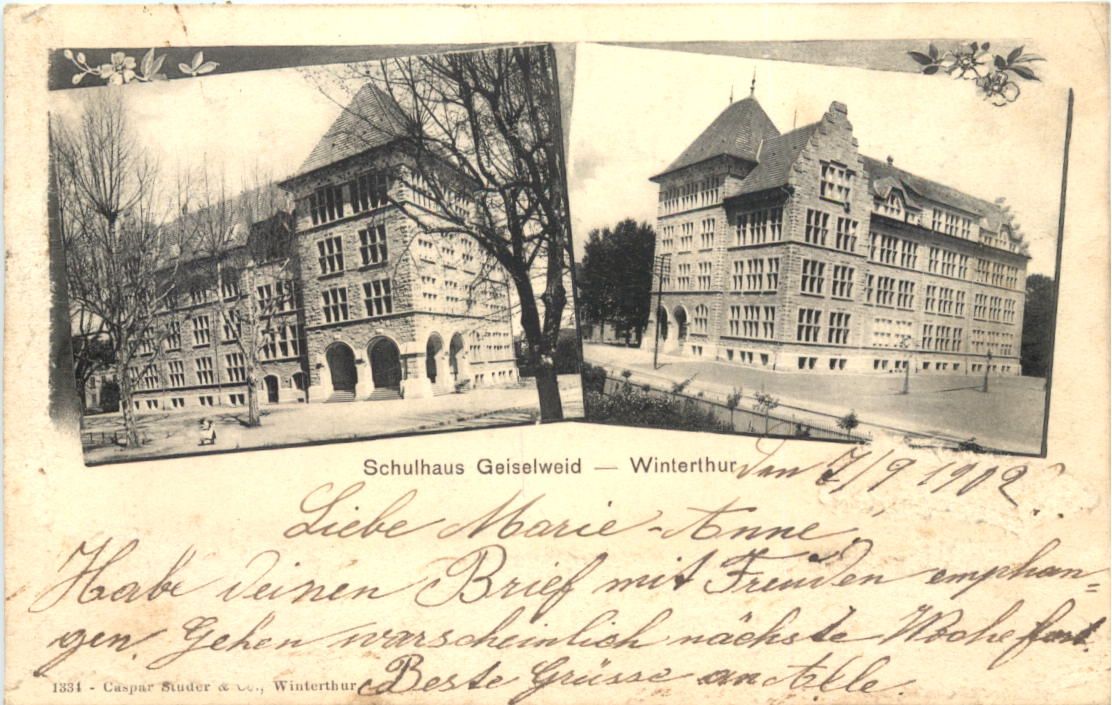 Schulhaus Geiselweid — Winterthur
Den 7/9 1902.
Liebe Marie-Anne,
Habe deinen Brief mit Freuden emphan-
gen. Gehen warscheinlich nächste Woche fort.
Beste Grüsse an Alle.
1334 - Caspar Studer & Co., Winterthur